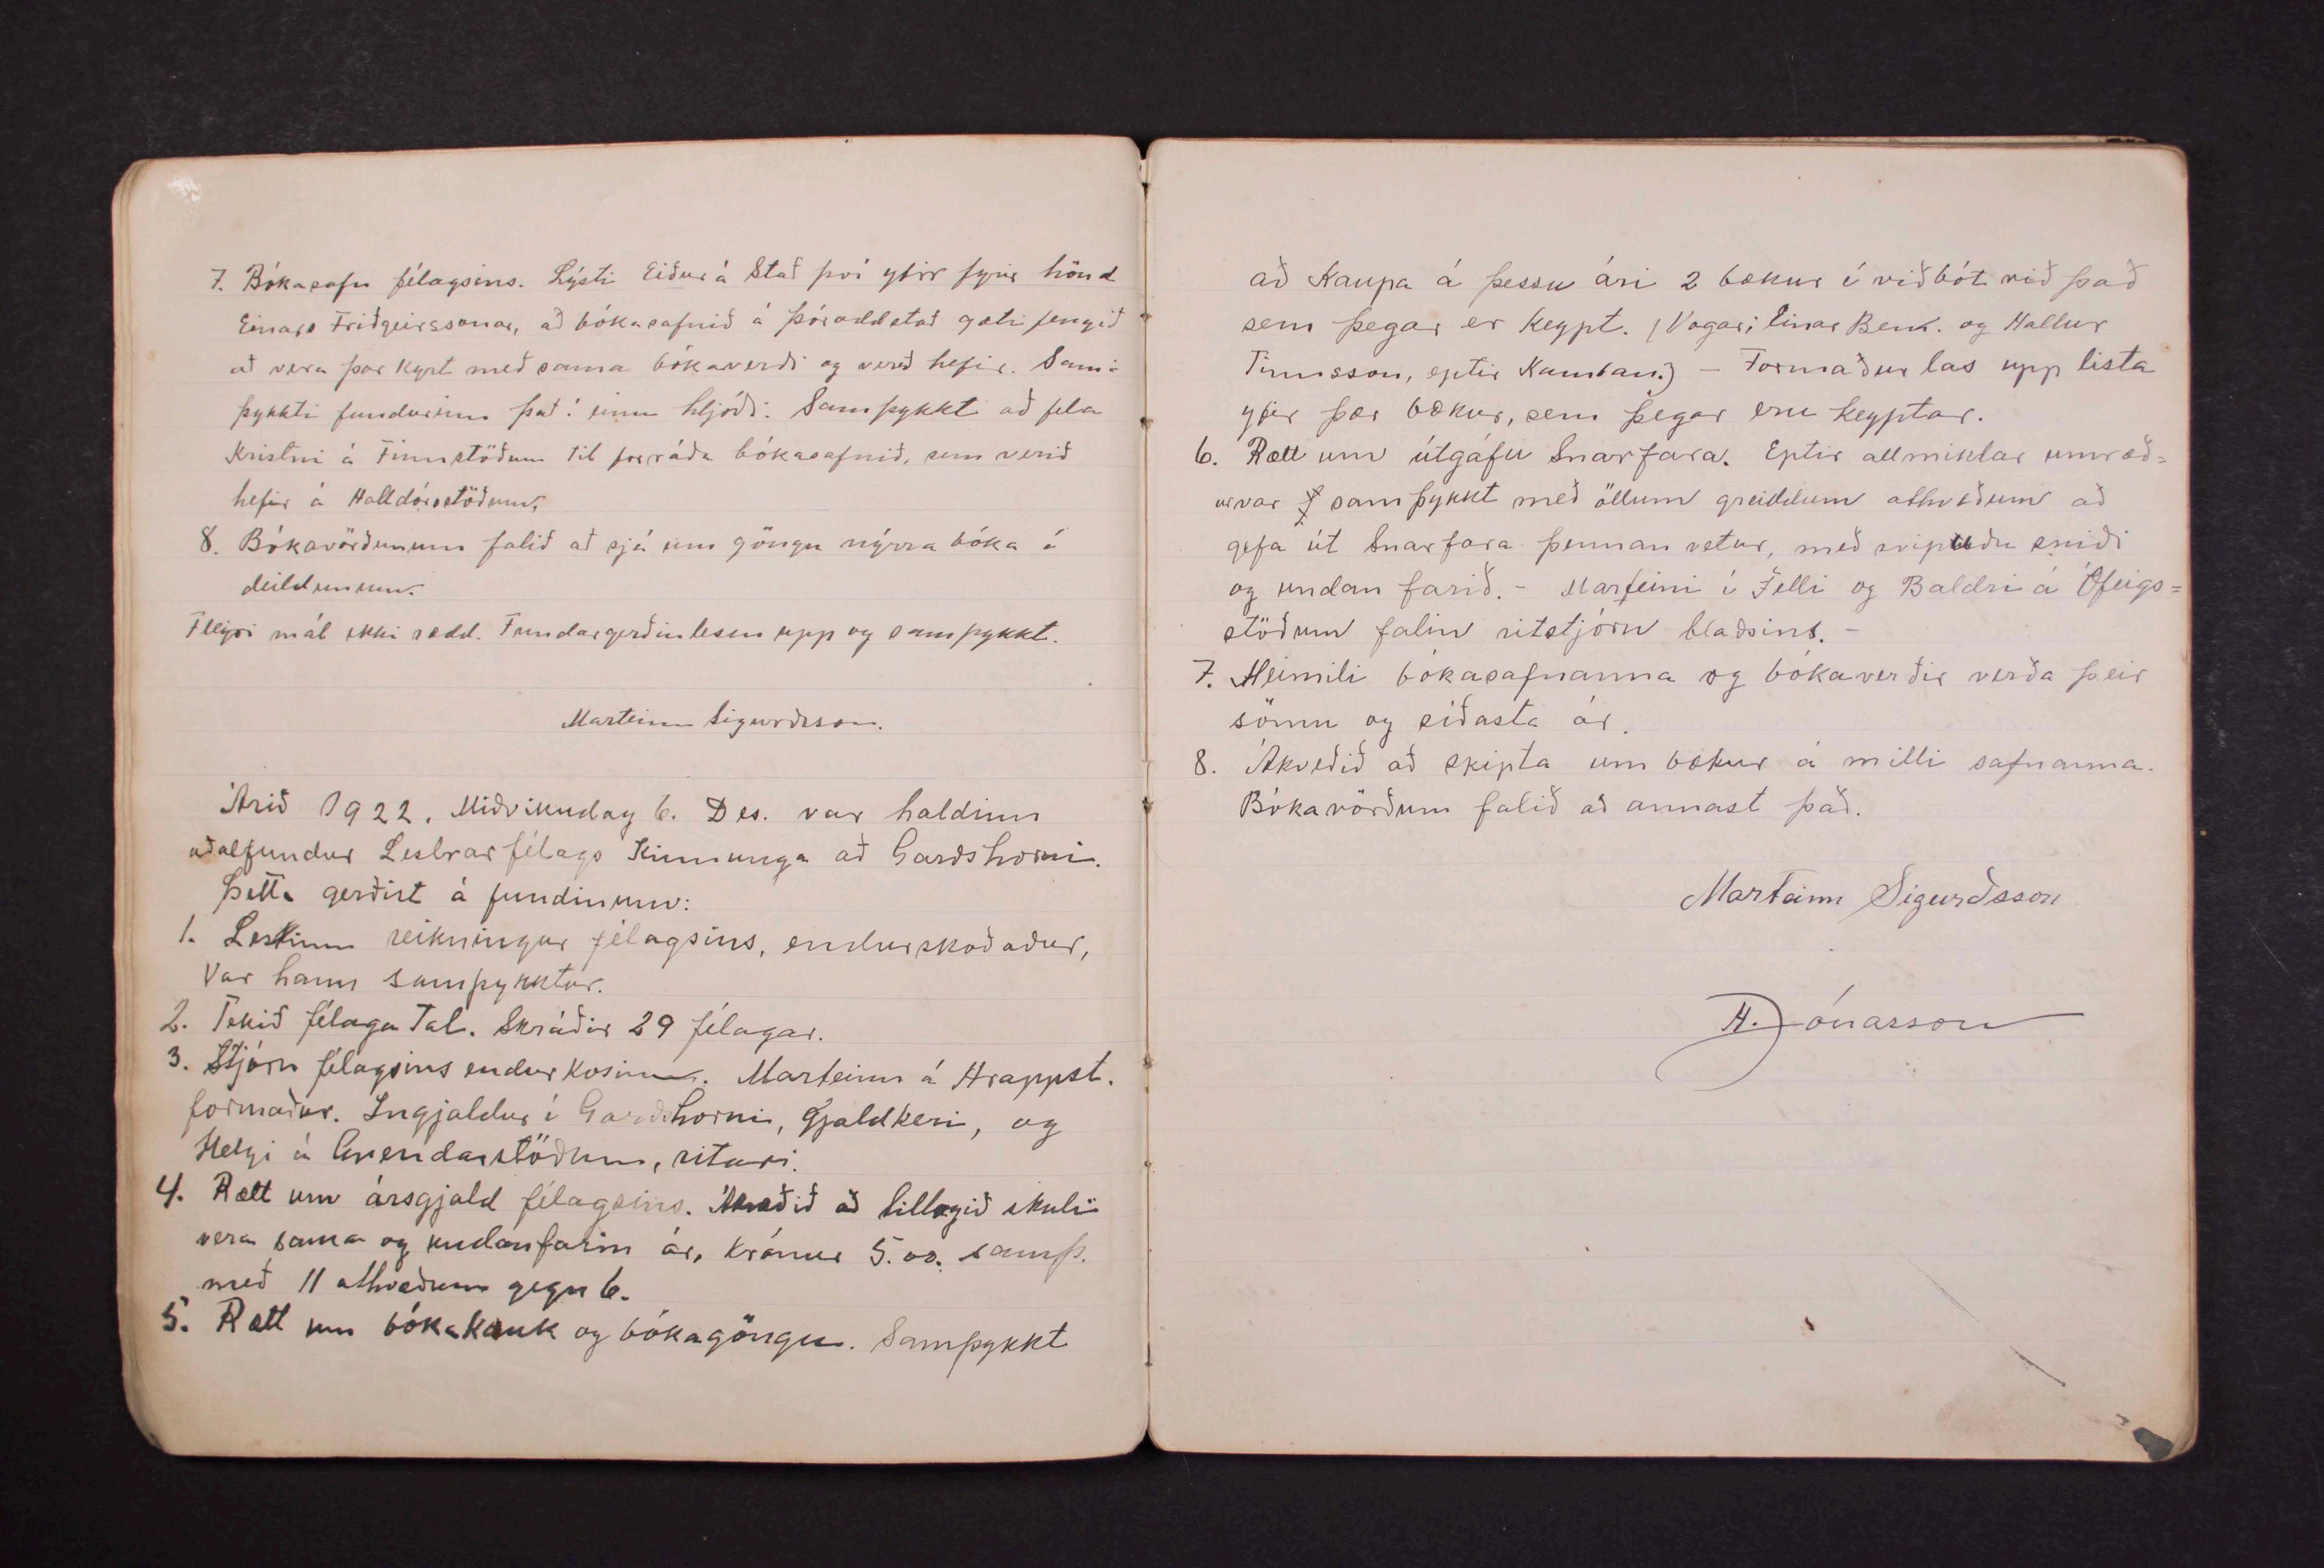 7. Bókasafn félagsins. Lýsti Eiður á Stað því yfir fyrir hönd
Einars Friðgeirssonar, að bókasafnið á Þóroddstað gæti fengið
að vera þar kyrt með sama bókaverði og verið hefir. Sam-
þykkti fundurinn það í einu hljóði. Samþykkt að fela
Kristni á Finnstöðum til forráða bókasafnið, sem verið
hefir á Halldórsstöðum.
8. Bókavörðunum falið at sjá um göngu nýrra bóka í
deildunum.
Fleiri mál ekki rædd. Fundargerðin lesin upp og samþykkt.
Marteinn Sigurðsson.
Árið 1922. Miðvikudag 6. Des. var haldinn
aðalfundur Lestrarfélags Kinnunga að Garðshorni.
Þetta gerðist á fundinum:
1. Lestinn reikningur félagsins, endurskoðaður,
Var hann samþykktur.
2. Tekið félaga Tal. Skráðir 29 félagar.
3. Stjórn félagsins endurkosinn. Marteinn á Hrappst.
formaður. Ingjaldur í Garðshorni, Gjaldkeri, og
Helgi á Grendarstöðum, ritari.
4. Rætt um ársgjald félagsins. Ákveðið að tillagið skuli
vera sama og undanfarin ár, Krónur 5.00. samþ.
með 11 atkvæðum gegn 6.
5. Rætt um bókakauk og bókagöngu. Samþykkt
að Kaupa á þessu ári 2 bækur í viðbót við það
sem þegar er Keypt. (Vogar; Einar Ben. og Hallur
Finnsson, eptir Kamban.) - Formaður las upp lista
yfir þær bækur, sem þegar eru keyptar.
6. Rætt um útgáfu Snarfara. Eptir allmiklar umræð=
ur var samþykkt með öllum greiddum atkvæðum að
gefa út Snarfara þennan vetur, með svipuðu sniði
og undan farið. - Marteini í Felli og Baldri á Ófeigs=
stöðum falin ritstjórn blaðsins. -
7. Heimili bókasafnanna og bókaverðir verða þeir
sömu og síðasta ár.
8. Ákveðið að skipta um bækur á milli safnanna.
Bókavörðum falið að annast það.
Marteinn Sigurðsson
H. Jónasson